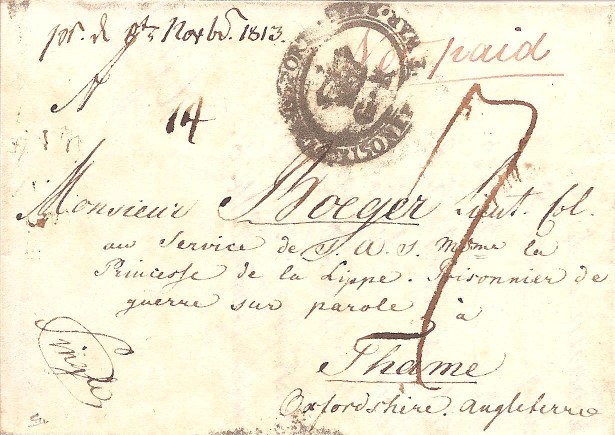 Novbr. 1813.
Not paid
14
7
Monsieur Hoeger Lieut. Col.
au Service de S. A. S. Mdme la
Princesse de la Lippe. Prisonnier de
guerre sur parole à
Thame
Oxfordshire. Angleterre
Single